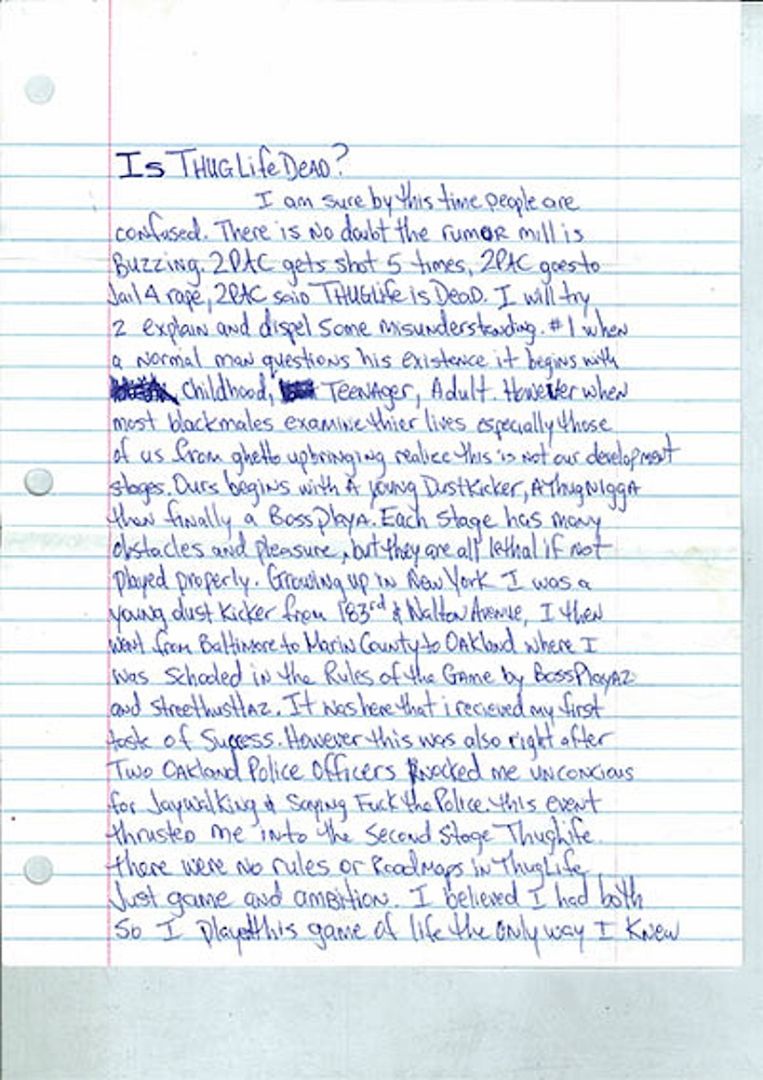 Is THUGLifeDEAD?
I am sure by this time people are
confused. There is no doubt the rumOR mill is
Buzzing. 2PAC gets shot 5 times, 2PAC goes to
Jail 4 rape, 2PAC said THUGLife is DeaD. I will try
2 explain and dispel some misunderstanding. #1 when
a normal man questions his existence it begins with
Childhood, TeenAger, Adult. However when
most blackmales examine thier lives especially those
of us from ghetto upbringing realize this is not our development
stages. Ours begins with A young DustKicker, A Thug NIggA
then finally a BossPlayA. Each stage has many
obstacles and pleasure, but they are all lethal if not
Played properly. Growing up in New York I was a
young dust Kicker from 183rd & Walton Avenue, I then
went from Baltimore to Marin County to OAKland where I
was schooled in the Rules of the Game by BossPlayAz
and streethustlaz. It was here that i recieved my first
taste of Success. However this was also right after
Two OAKland Police Officers Knocked me unconcious
for Jaywalking & Saying Fuck the Police. this event
thrusted me into the Second Stage Thuglife.
there were no rules or RoadMaps in ThugLife
Just game and ambition. I believed I had both
So I played this game of life the only way I Knew